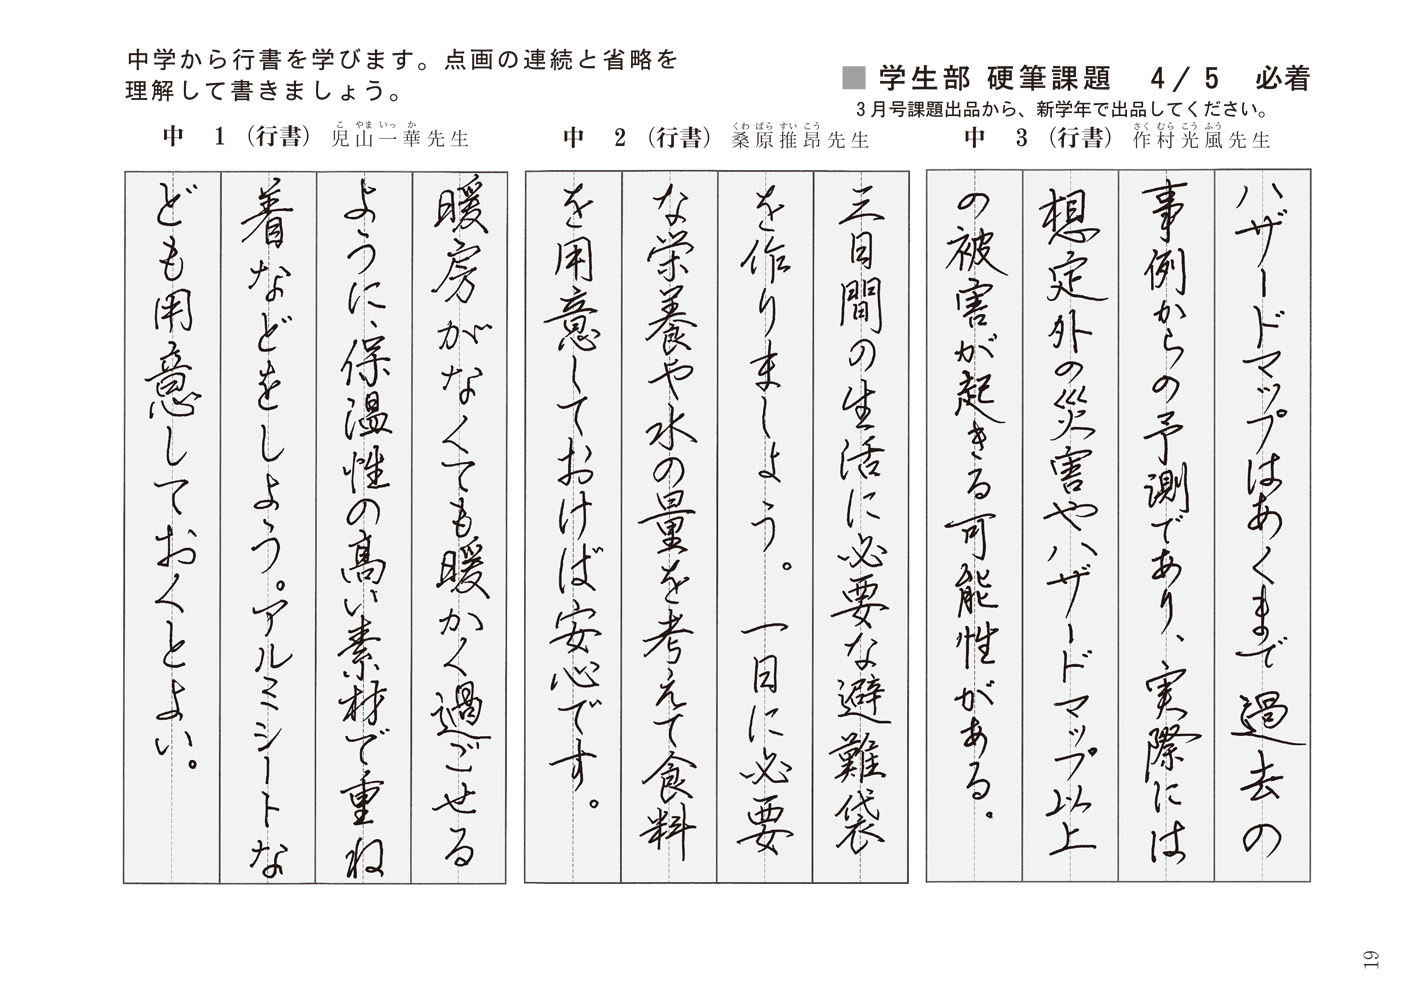 中学から行書を学びます。点画の連続と省略を
理解して書きましょう。
■ 学生部 硬筆課題 4/5 必着
3月号課題出品から、新学年で出品してください。
中 3 (行書) 作村光風先生
さくむらこうふう
ハザードマップはあくまで過去の
事例からの予測であり、実際には
想定外の災害やハザードマップ以上
の被害が起きる可能性がある。
中 2 (行書) 桑原推昂先生
くわばらすいこう
三日間の生活に必要な避難袋
を作りましょう。一日に必要
な栄養や水の量を考えて食料
を用意しておけば安心です。
中 1 (行書) 児山一華先生
こやまいっか
暖房がなくても暖かく過ごせる
ように、保温性の高い素材で重ね
着などをしよう。アルミシートな
ども用意しておくとよい。
19